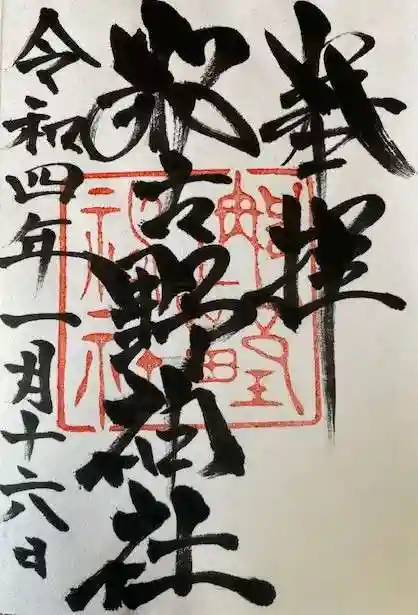 奉拝
那古野神社
令和四年一月十六日